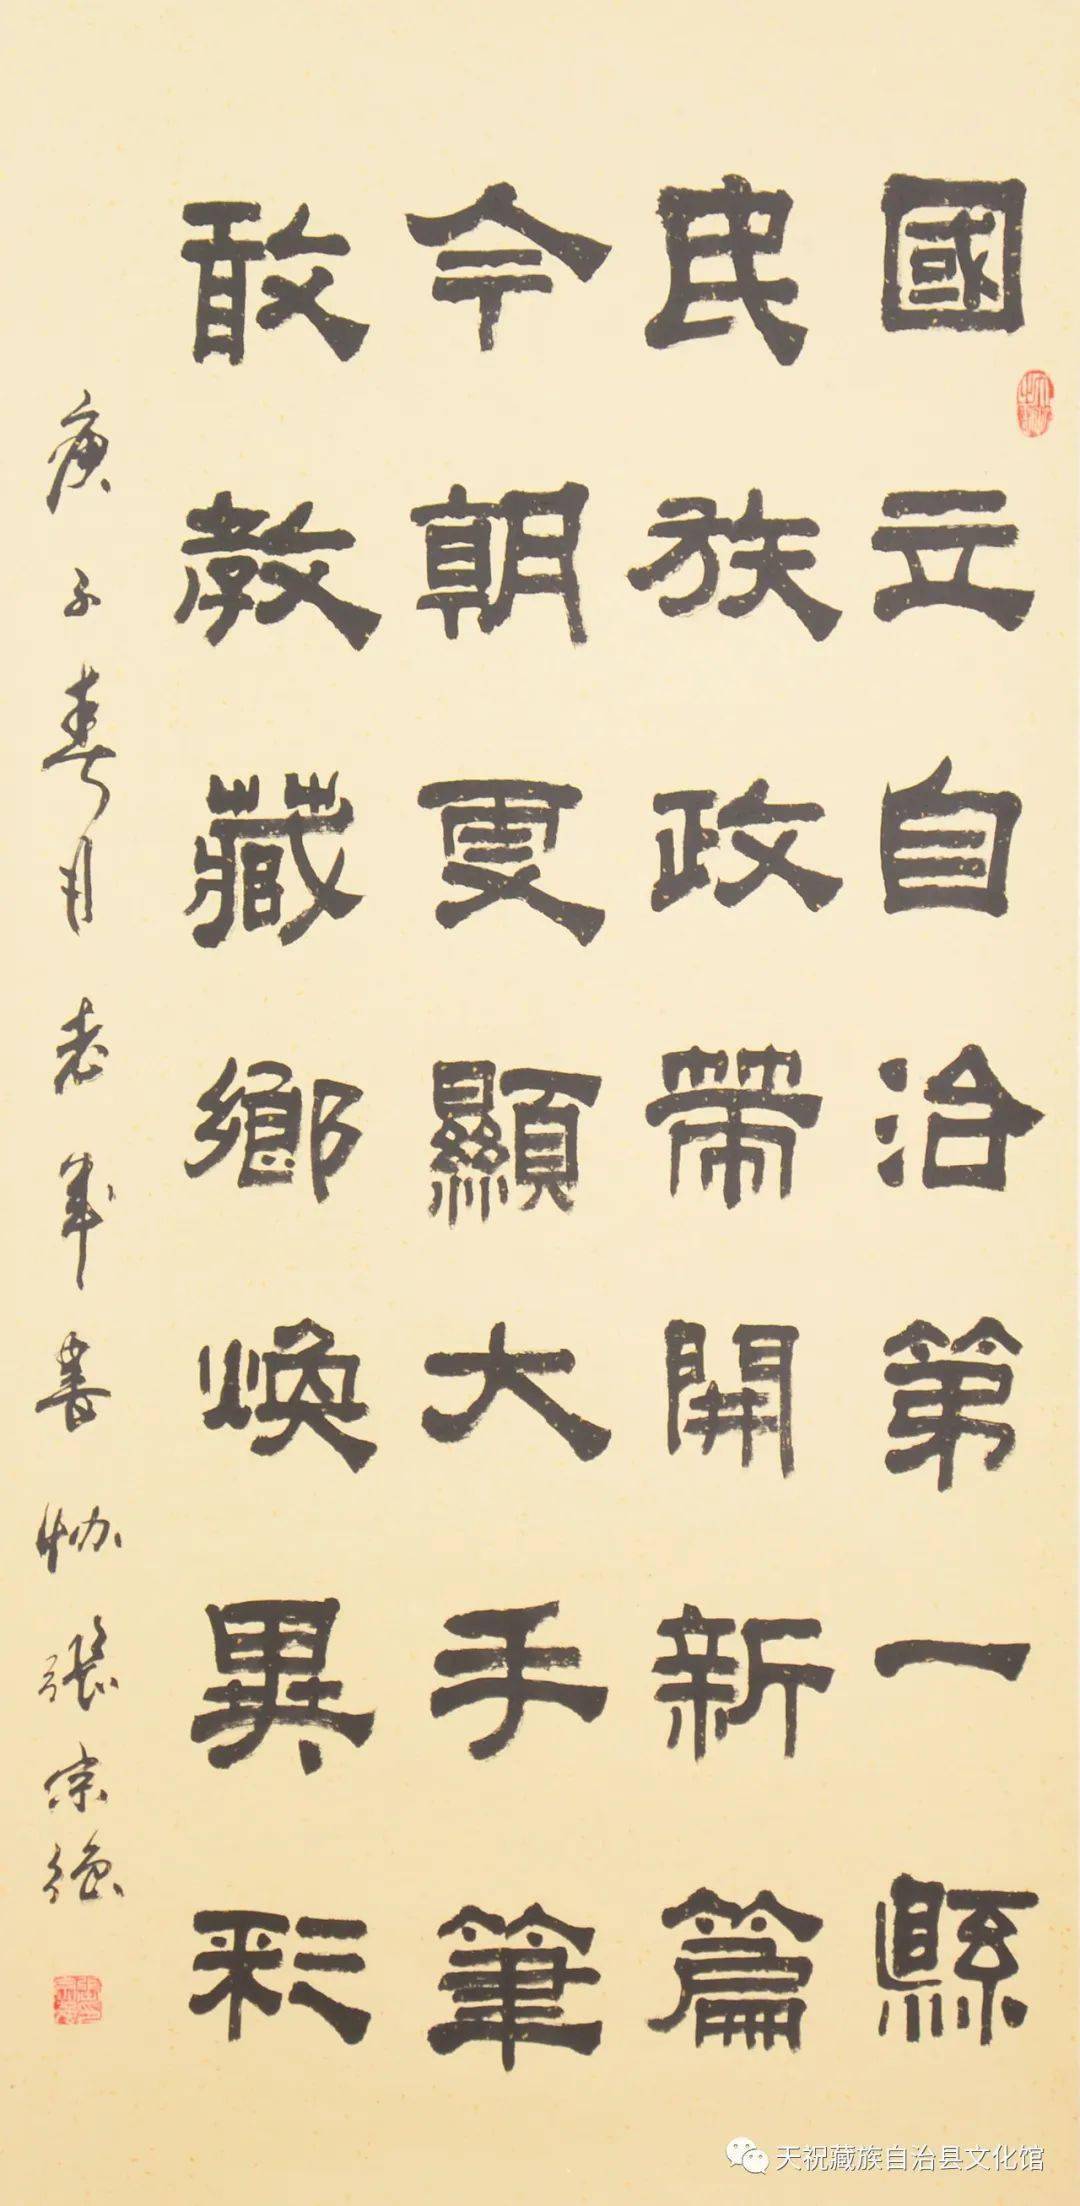 國立自治第一縣
民族政帶開新篇
今朝更顯大手筆
敢教藏鄉煥異彩
庚子春月老年書協張宗強
天祝藏族自治县文化馆